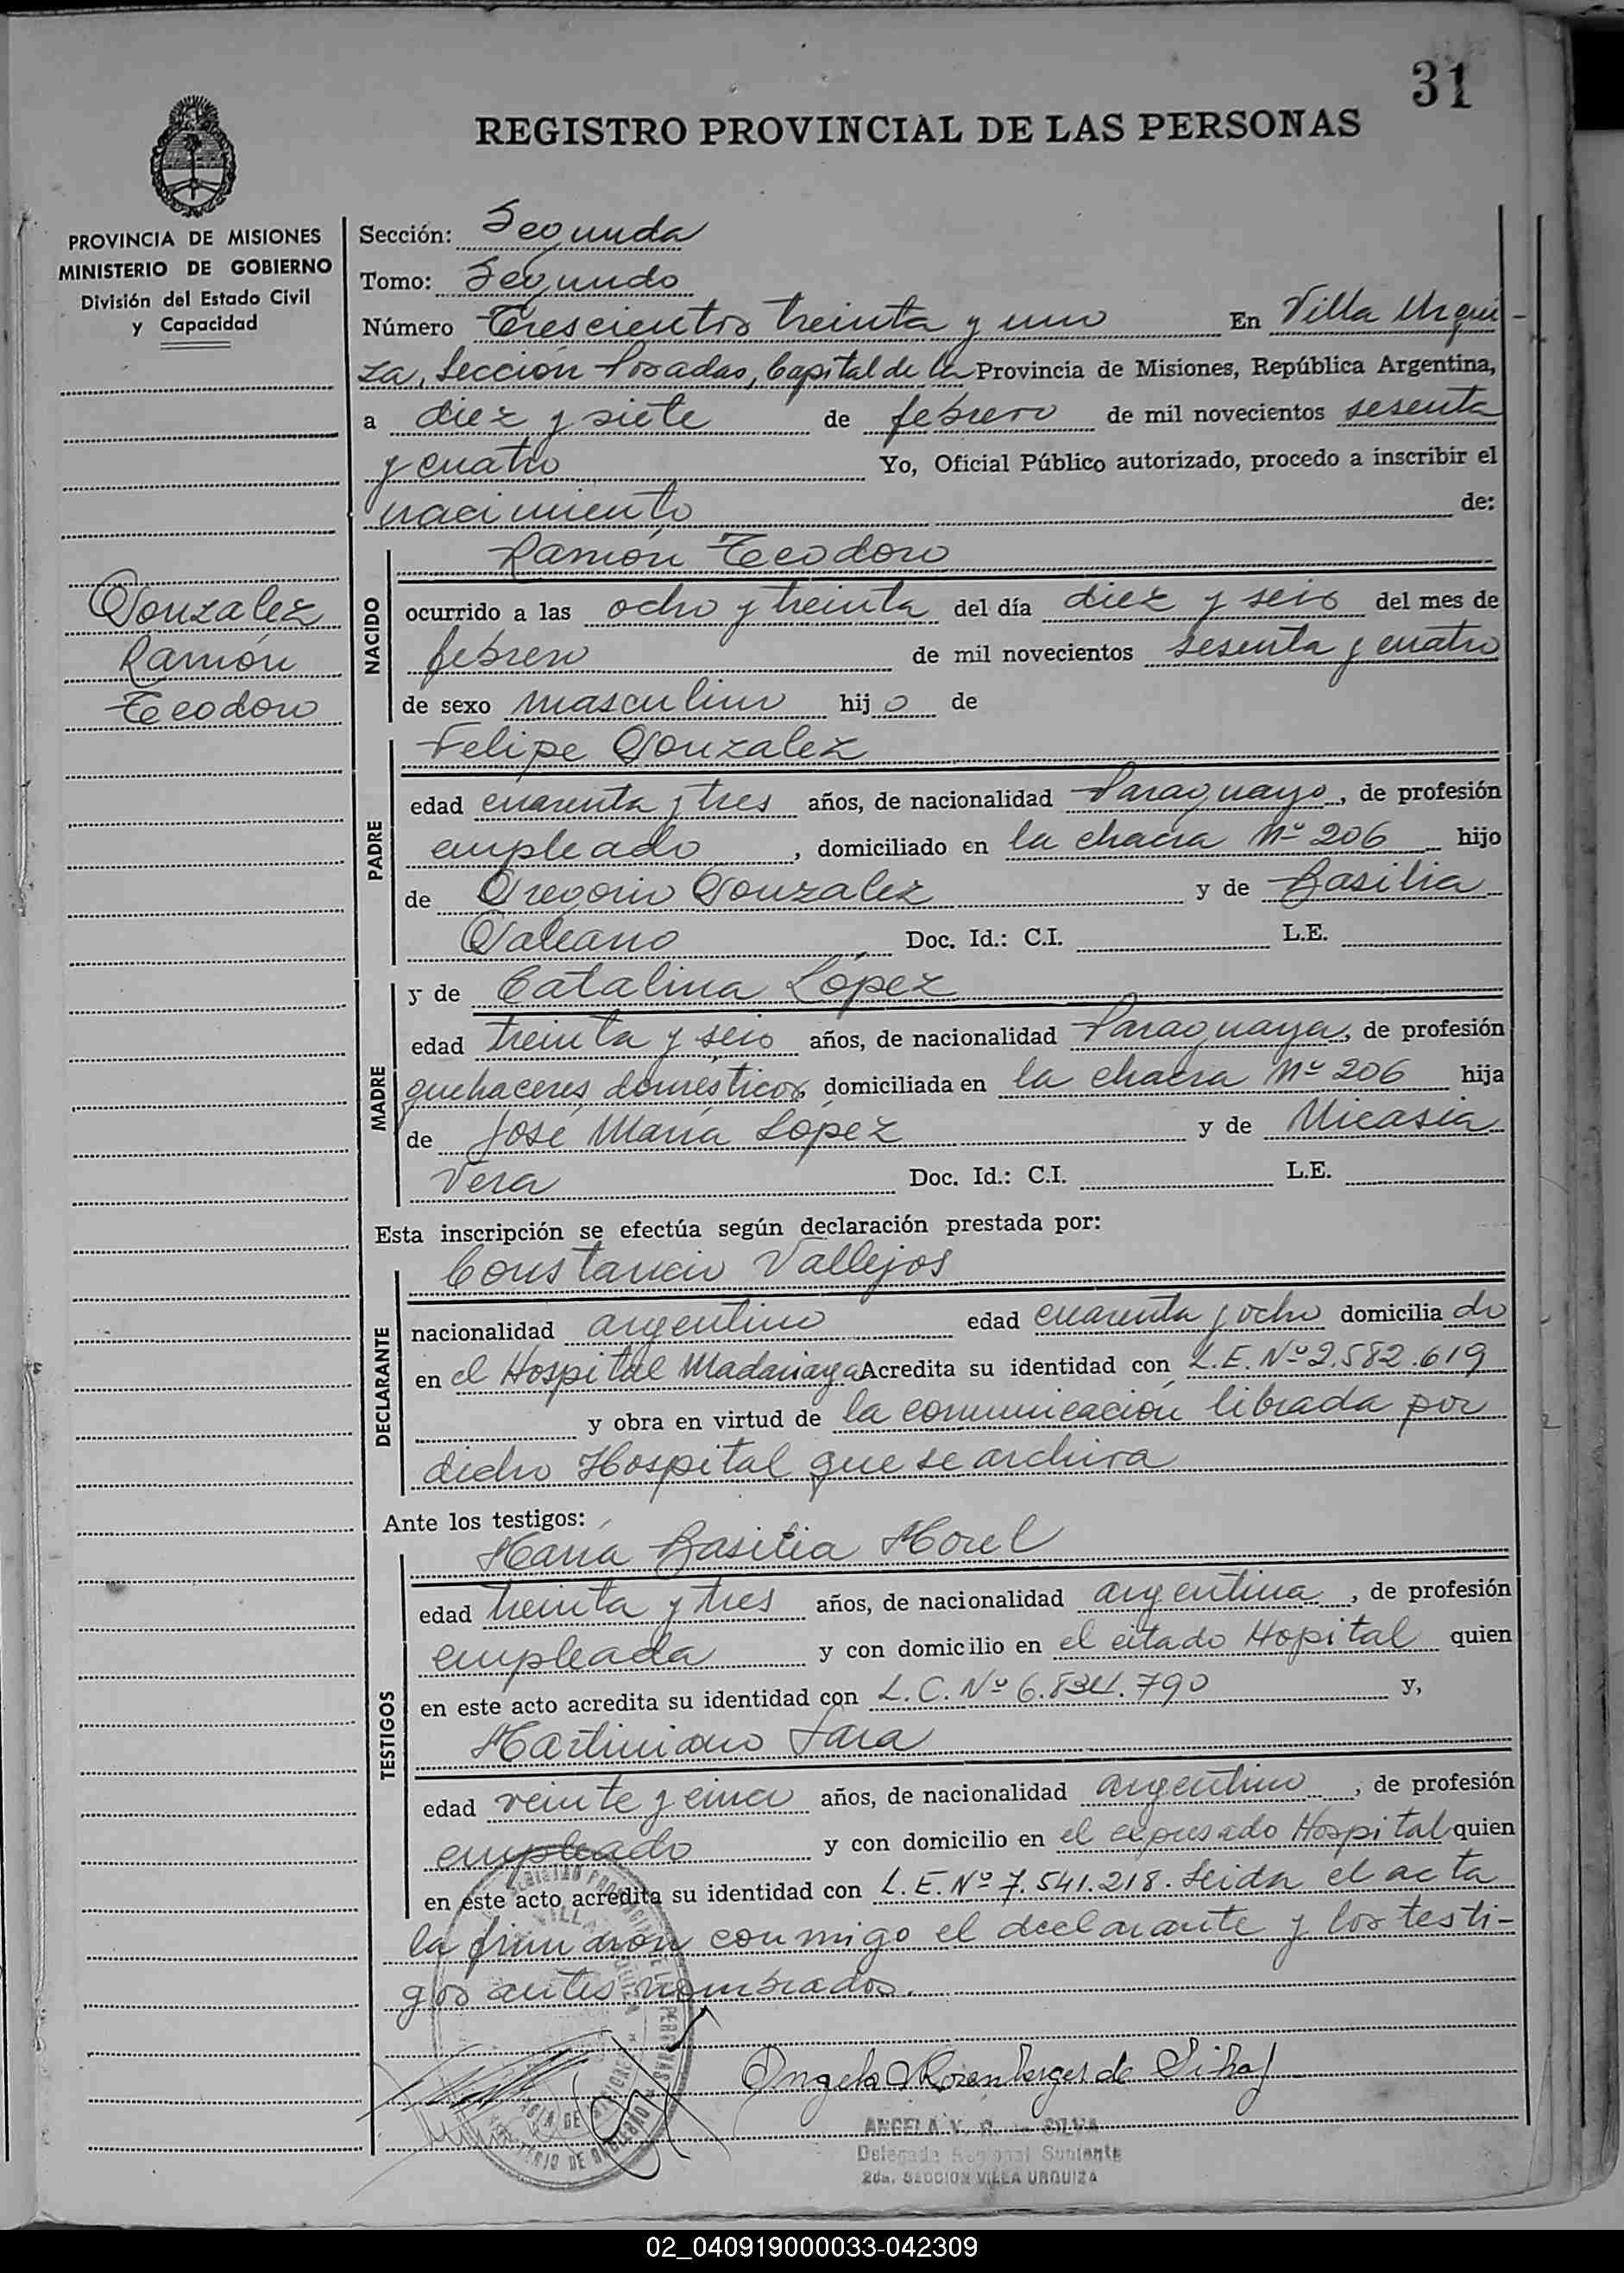 31
REGISTRO PROVINCIAL DE LAS PERSONAS
PROVINCIA DE MISIONES
MINISTERIO DE GOBIERNO
División del Estado Civil
y Capacidad
Gonzalez
Ramón
Teodoro
Sección: Segunda
Tomo: Segundo
Número Trescientos treinta y uno En Villa Urqui-
za, Sección Posadas, Capital de la Provincia de Misiones, República Argentina,
a diez y siete de febrero de mil novecientos sesenta
y cuatro Yo, Oficial Público autorizado, procedo a inscribir el
nacimiento de:
NACIDO
Ramón Teodoro
ocurrido a las ocho y treinta del día diez y seis del mes de
febrero de mil novecientos sesenta y cuatro
de sexo masculino hijo de
PADRE
Felipe Gonzalez
edad cuarenta y tres años, de nacionalidad Paraguayo, de profesión
empleado, domiciliado en la chacra Nº 206 hijo
de Gregorio Gonzalez y de Basilia
Galeano Doc. Id.: C.I. L.E.
MADRE
y de Catalina López
edad treinta y seis años, de nacionalidad Paraguaya, de profesión
quehaceres domésticos, domiciliada en la chacra Nº 206 hija
de José María López y de Nicasia
Vera Doc. Id.: C.I. L.E.
Esta inscripción se efectúa según declaración prestada por:
DECLARANTE
Constancio Vallejos
nacionalidad argentino edad cuarenta y ocho domiciliado
en el Hospital Madariaga Acredita su identidad con L.E. Nº 2.582.619
y obra en virtud de la comunicación librada por
dicho Hospital que se archiva
Ante los testigos:
TESTIGOS
María Basilia Morel
edad treinta y tres años, de nacionalidad argentina, de profesión
empleada y con domicilio en el citado Hopital quien
en este acto acredita su identidad con L.C. Nº 6.834.790 y,
Martiniano Jara
edad veinte y cinco años, de nacionalidad argentino, de profesión
empleado y con domicilio en el expresado Hospital quien
en este acto acredita su identidad con L.E. Nº 7.541.218. Leida el acta
la firmaron conmigo el declarante y los testi-
gos antes nombrados.
Angela Rosenberger de Silva
ANGELA V. R. de SILVA
Delegada Regional Suplente
2da. SECCION VILLA URQUIZA
02_040919000033-042309